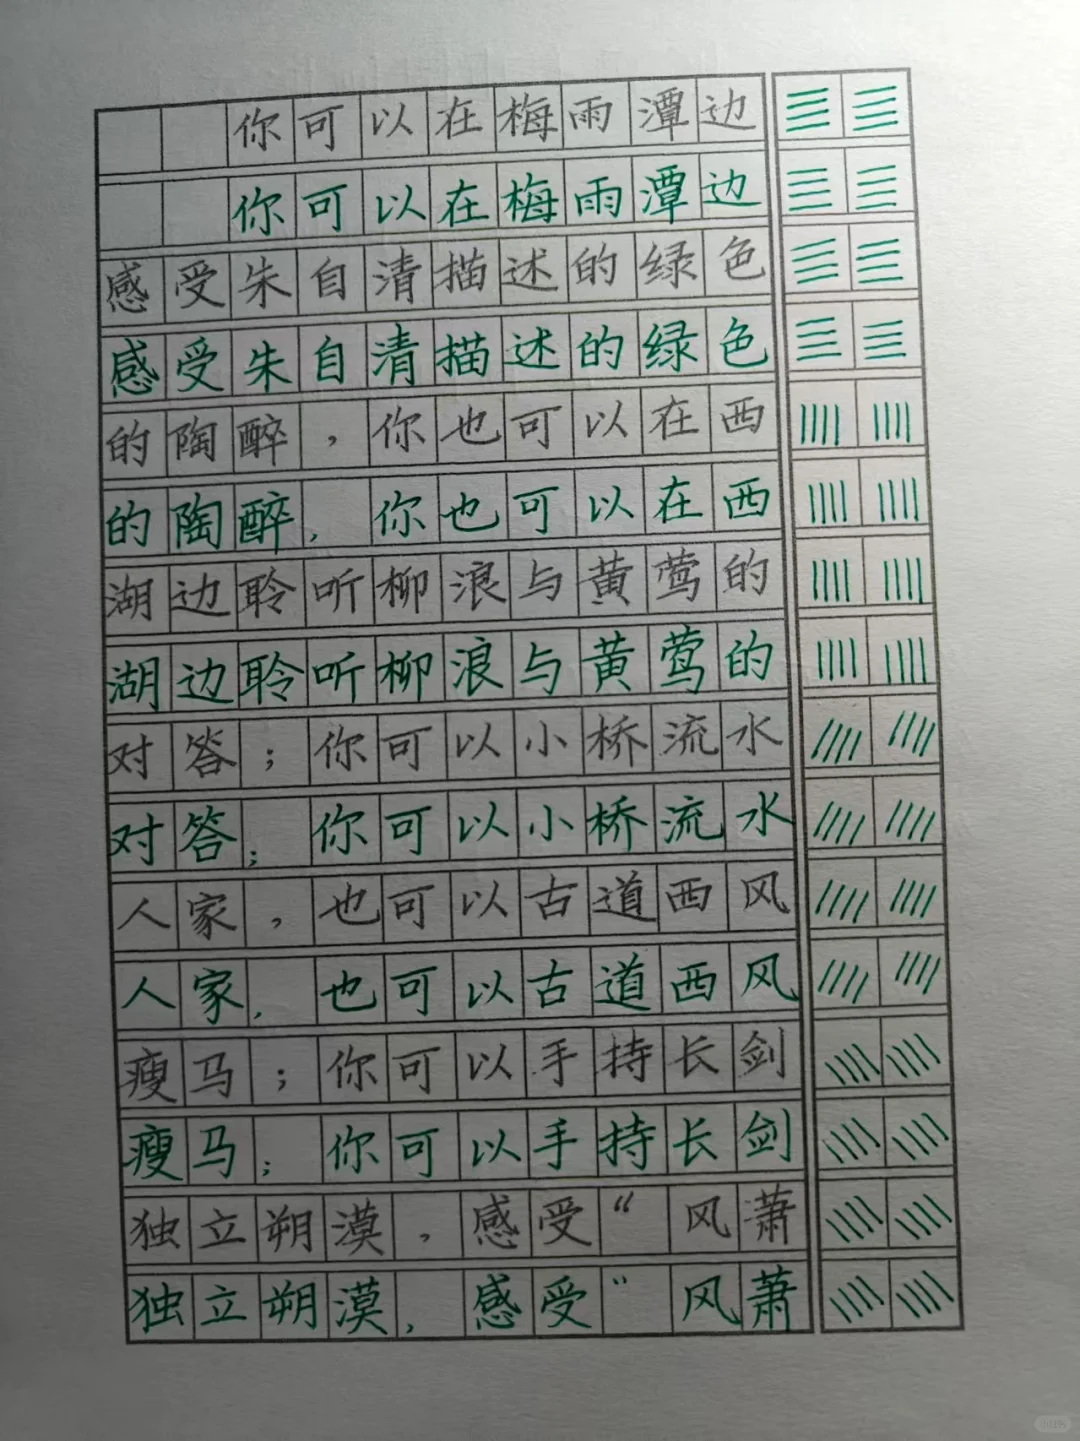 你可以在梅雨潭边
你可以在梅雨潭边
感受朱自清描述的绿色
感受朱自清描述的绿色
的陶醉，你也可以在西
的陶醉，你也可以在西
湖边聆听柳浪与黄莺的
湖边聆听柳浪与黄莺的
对答；你可以小桥流水
对答；你可以小桥流水
人家，也可以古道西风
人家，也可以古道西风
瘦马；你可以手持长剑
瘦马；你可以手持长剑
独立朔漠，感受“风萧
独立朔漠，感受“风萧